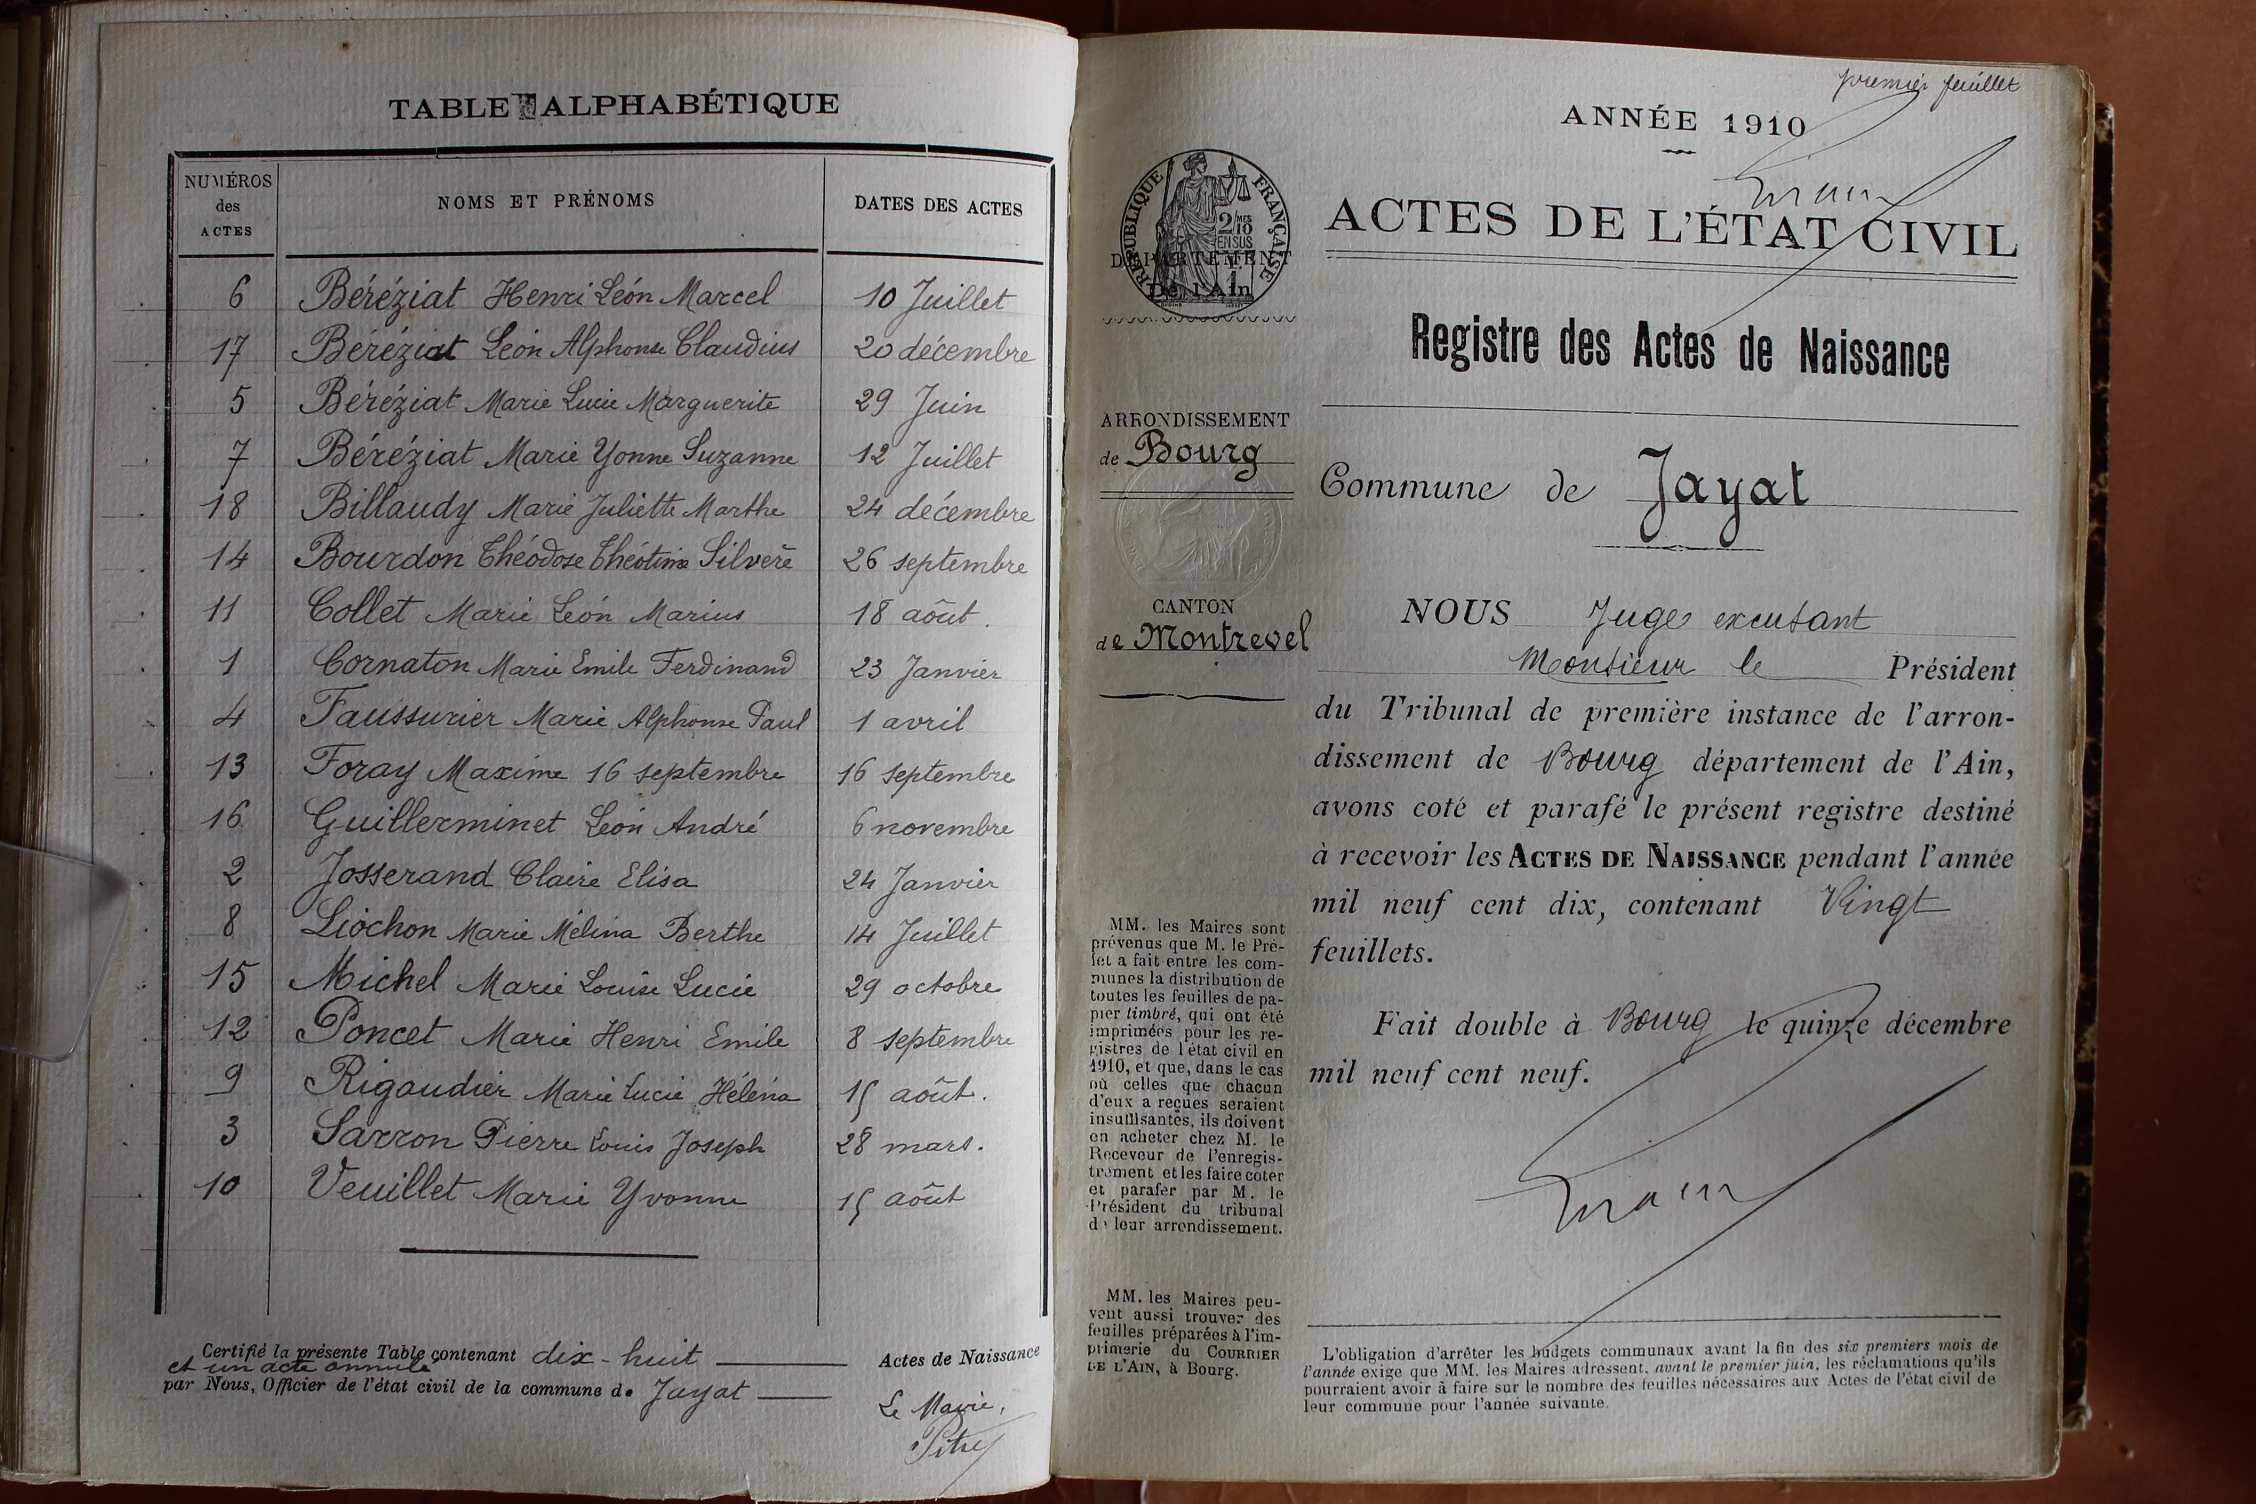 TABLE ALPHABÉTIQUE
NUMÉROS des ACTES NOMS ET PRÉNOMS DATES DES ACTES
6 Béréziat Henri Léon Marcel 10 Juillet
17 Béréziat Léon Alphonse Claudius 20 décembre
5 Béréziat Marie Lucie Marguerite 29 Juin
7 Béréziat Marie Yonne Suzanne 12 Juillet
18 Billaudy Marie Juliette Marthe 24 décembre
14 Bourdon Théodose Théotime Silvère 26 septembre
11 Collet Marie Léon Marius 18 août.
1 Cornaton Marie Emile Ferdinand 23 Janvier
4 Faussurier Marie Alphonse Paul 1 avril
13 Foray Maxime 16 septembre 16 septembre
16 Guillerminet Léon André 6 novembre
2 Josserand Claire Elisa 24 Janvier
8 Liochon Marie Mélina Berthe 14 Juillet
15 Michel Marie Louise Lucie 29 octobre
12 Poncet Marie Henri Emile 8 septembre
9 Rigaudier Marie Lucie Héléna 15 août.
3 Sarron Pierre Louis Joseph 28 mars.
10 Veuillet Marie Yvonne 15 août
Certifié la présente Table contenant dix-huit Actes de Naissance
et un acte annulé
par Nous, Officier de l'état civil de la commune de Jayat
Le Maire,
premier feuillet
ANNÉE 1910
ACTES DE L'ÉTAT CIVIL
Registre des Actes de Naissance
RÉPUBLIQUE FRANÇAISE
2/10 MES
EN SUS
DÉPARTEMENT
De l'Ain
ARRONDISSEMENT
de Bourg
CANTON
de Montrevel
MM. les Maires sont
prévenus que M. le Pré-
fet a fait entre les com-
munes la distribution de
toutes les feuilles de pa-
pier timbré, qui ont été
imprimées pour les re-
gistres de l'état civil en
1910, et que, dans le cas
où celles que chacun
d'eux a reçues seraient
insuffisantes, ils doivent
en acheter chez M. le
Receveur de l'enregis-
trement et les faire coter
et parafer par M. le
Président du tribunal
de leur arrondissement.
MM. les Maires peu-
vent aussi trouver des
feuilles préparées à l'im-
primerie du COURRIER
DE L'AIN, à Bourg.
Commune de Jayat
NOUS Juge excusant
Monsieur le Président
du Tribunal de première instance de l'arron-
dissement de Bourg département de l'Ain,
avons coté et parafé le présent registre destiné
à recevoir les ACTES DE NAISSANCE pendant l'année
mil neuf cent dix, contenant Vingt
feuillets.
Fait double à Bourg le quinze décembre
mil neuf cent neuf.
L'obligation d'arrêter les budgets communaux avant la fin des six premiers mois de
l'année exige que MM. les Maires adressent, avant le premier juin, les réclamations qu'ils
pourraient avoir à faire sur le nombre des feuilles nécessaires aux Actes de l'état civil de
leur commune pour l'année suivante.